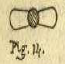 Fig. 14.